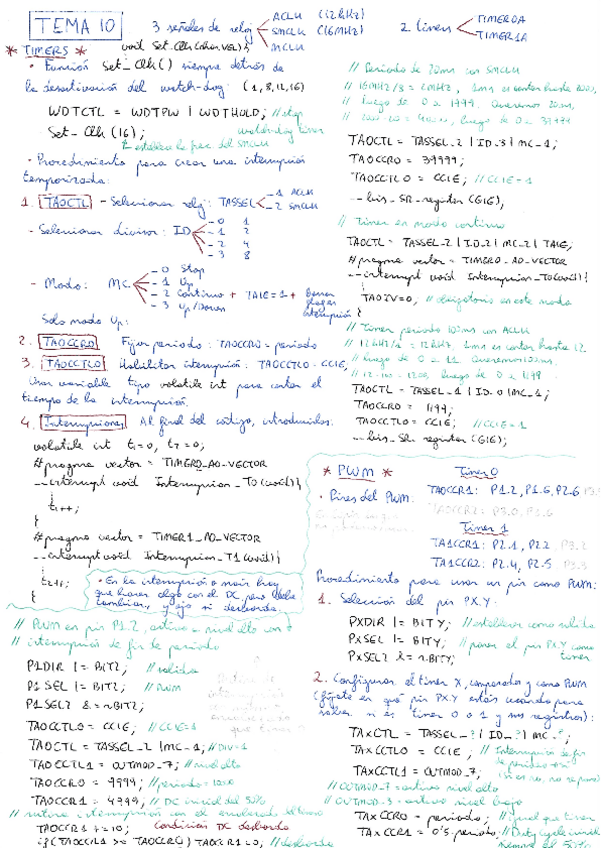 TEMA 10
3 señales de reloj
ACLK (12kHz)
SMCLK (16MHz)
MCLK
2 timers
TIMER0A
TIMER1A
* TIMERS *
void Set_Clk(char VEL);
• Función Set_Clk() siempre detrás de
la desactivación del watch-dog: (1,8,12,16)
WDTCTL = WDTPW | WDTHOLD; // stop
watch-dog timer
Set_Clk (16);
establece la frec del SMCLK
• Procedimiento para crear una interrupción
temporizada:
1. TA0CTL - Seleccionar reloj: TASSEL
_1 ACLK
_2 SMCLK
- Seleccionar divisor: ID
_0 1
_1 2
_2 4
_3 8
- Modo: MC
_0 Stop
_1 Up
_2 Continuo + TAIE=1 + Borrar
flag
interrupción
_3 Up/Down
Solo modo Up:
2. TA0CCR0 Fijar periodo: TA0CCR0 = periodo
3. TA0CCTL0 Habilitar interrupción: TA0CCTL0 = CCIE;
Usar variable tipo volatile int para contar el
tiempo de la interrupción.
4. Interrupciones Al final del código, introducimos:
volatile int t1=0, t2=0;
#pragma vector = TIMER0_A0_VECTOR
__interrupt void Interrupcion_T0(void){
t1++;
}
#pragma vector = TIMER1_A0_VECTOR
__interrupt void Interrupcion_T1(void){
t2++;
}
• En la interrupción o main hay
que hacer algo con el DC, para
cambiar, y ojo si desborda.
// PWM en pin P1.2, activo a nivel alto con
// interrupción de fin de periodo
P1DIR |= BIT2; // salida
P1SEL |= BIT2; // PWM
P1SEL2 &= ~BIT2;
TA0CCTL0 = CCIE; // CCIE=1
TA0CTL = TASSEL_2 | MC_1; // DIV=1
TA0CCTL1 = OUTMOD_7; // nivel alto
TA0CCR0 = 9999; // periodo
TA0CCR1 = 4999; // DC inicial del 50%
TA0CCR1 += 10; Condición DC desborda
if(TA0CCR1 >= TA0CCR0) TA0CCR1=0; // desborde
// Periodo de 20ms con SMCLK
// 16MHz/8 = 2MHz, 1ms es contar hasta 2000,
// luego de 0 a 1999. Queremos 20ms,
luego de 0 a 39999
TA0CTL = TASSEL_2 | ID_3 | MC_1;
TA0CCR0 = 39999;
TA0CCTL0 = CCIE; // CCIE=1
__bis_SR_register(GIE);
// Timer en modo continuo
TA0CTL = TASSEL_2 | ID_2 | MC_2 | TAIE;
#pragma vector = TIMER0_A0_VECTOR
__interrupt void Interrupcion_T0(void){
TA0IV=0; // obligatorio en este modo
}
// Timer periodo 100ms con ACLK
// 12kHz/1 = 12kHz, 1ms es contar hasta 12
// luego de 0 a 11. Queremos 100ms,
// 12·100 = 1200, luego de 0 a 1199
TA0CTL = TASSEL_1 | ID_0 | MC_1;
TA0CCR0 = 1199;
TA0CCTL0 = CCIE; // CCIE=1
__bis_SR_register(GIE);
* PWM *
Timer 0
• Pines del PWM: TA0CCR1: P1.2, P1.6, P2.6
TA0CCR2: P3.0, P3.6
Timer 1
TA1CCR1: P2.1, P2.2, P3.2
TA1CCR2: P2.4, P2.5
Procedimiento para usar un pin como PWM:
1. Selección del pin PX.Y:
PXDIR |= BITY; // establecer como salida
PXSEL |= BITY; // poner el pin PX.Y como
timer
PXSEL2 &= ~BITY;
2. Configurar el timer X, comparador y como PWM
(fíjate en qué pin PX.Y estás usando para
saber si es timer 0 o 1 y sus registros):
TAXCTL = TASSEL_? | ID_? | MC_?;
TAXCCTL0 = CCIE; // Interrupción de fin
de periodo
TAXCCTL1 = OUTMOD_7;
// OUTMOD_7 = activo nivel alto
// OUTMOD_3 = activo nivel bajo
TAXCCR0 = periodo;
TAXCCR1 = 0'5·periodo; // Duty cycle inicial